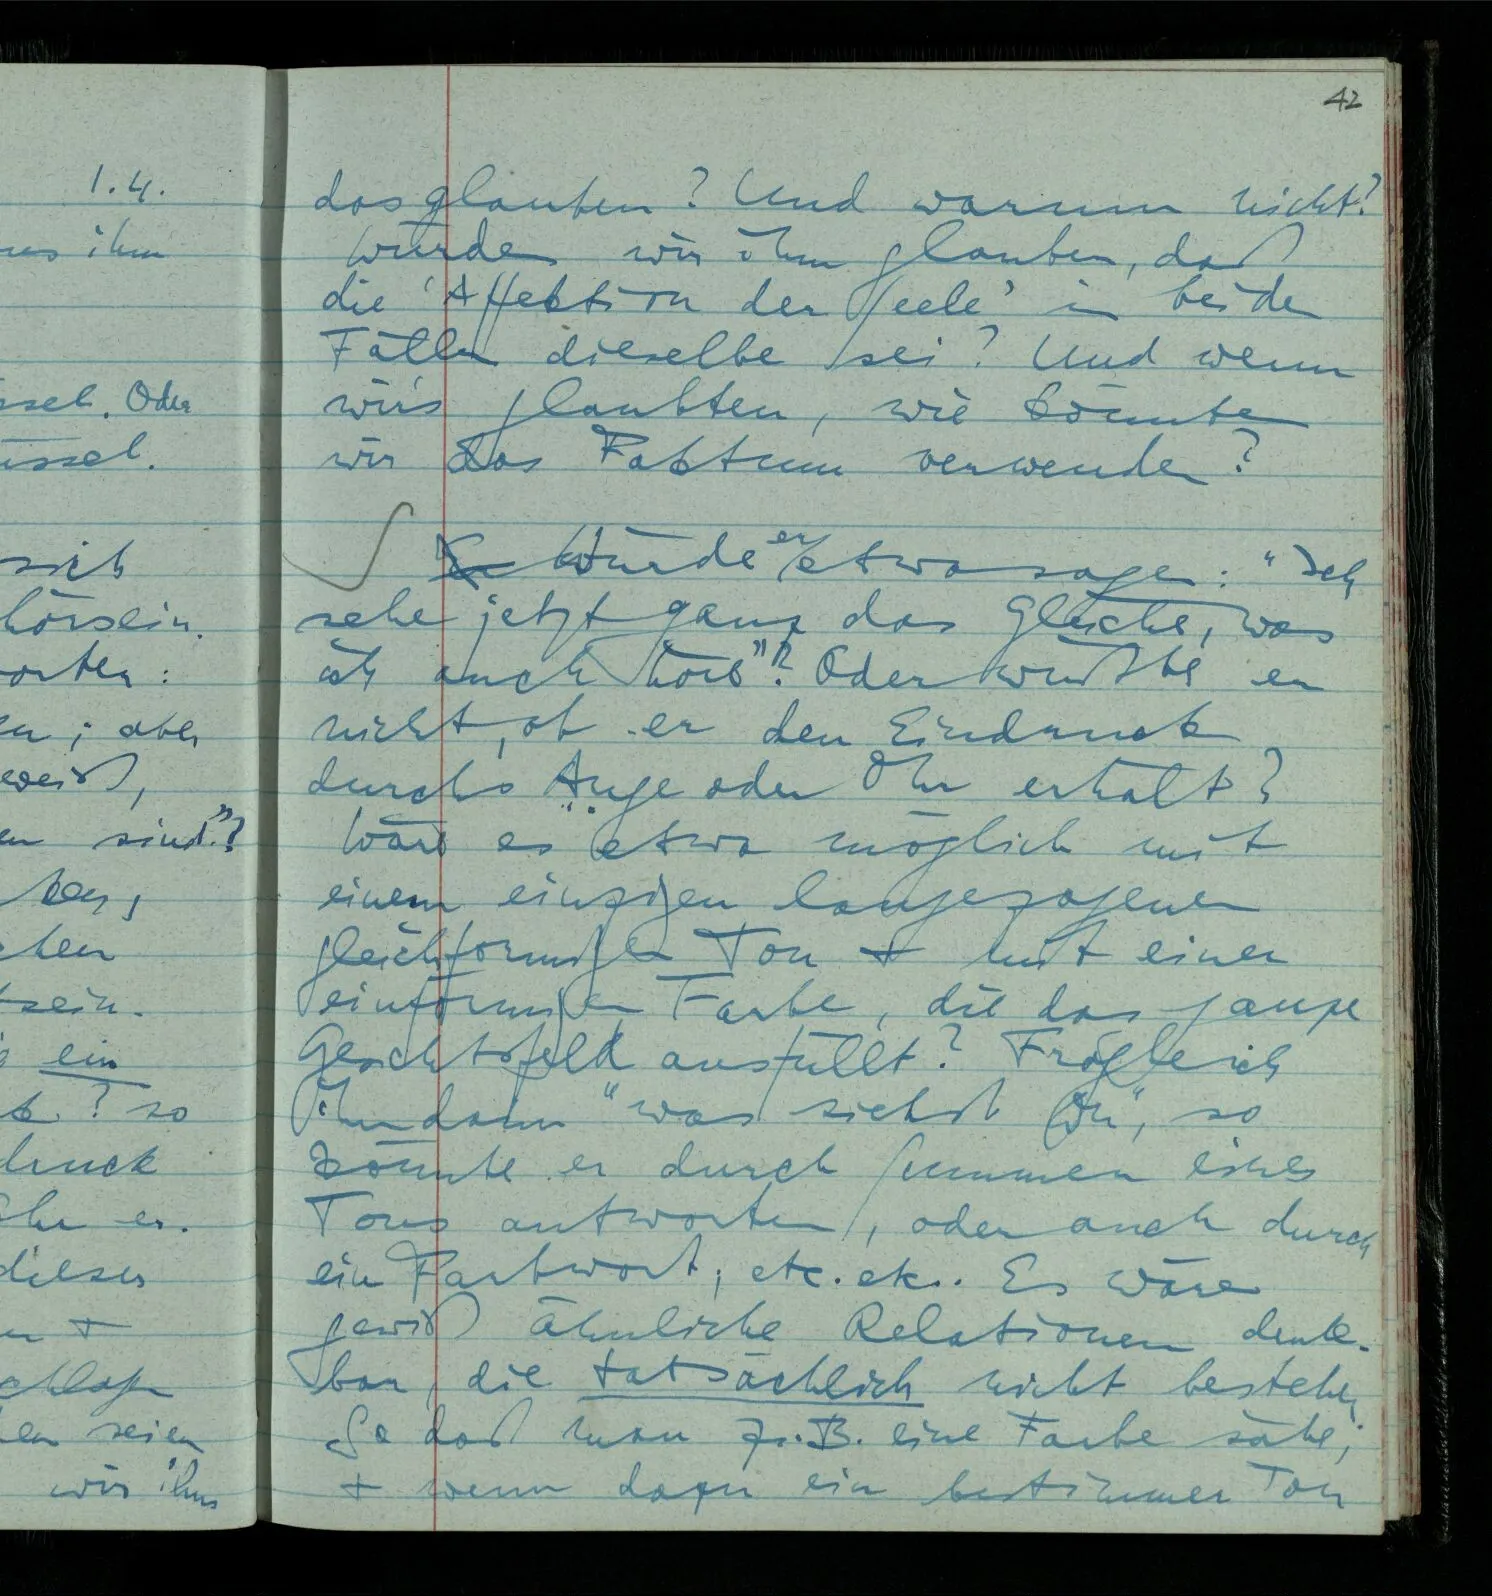 1.4.
ihm
Oder
sich
aber
sind"?
ein
? so
er.
dieses
+
seien
wir ihm
42
das glauben? Und warum nicht?
Würden wir ihm glauben, daß
die 'Affektion der Seele' in beiden
Fällen dieselbe sei? Und wenn
wir's glaubten, wie könnten
wir das Faktum verwenden?
Er Würde er etwa sagen: "Ich
sehe jetzt ganz das Gleiche, was
ich auch höre"? Oder wüßte er
nicht, ob er den Eindruck
durchs Auge oder Ohr erhält?
Wäre es etwa möglich mit
einem einzigen langezogenen
gleichförmigen Ton + mit einer
einförmigen Farbe, die das ganze
Gesichtsfeld ausfüllt? Fräge ich
ihn dann "was siehst Du", so
könnte er durch Summen eines
Tons antworten, oder auch durch
ein Farbwort, etc. etc.. Es wären
gewiß ähnliche Relationen denk-
bar, die tatsächlich nicht bestehen.
So daß man z.B. eine Farbe sähe,
+ wenn dazu ein bestimmer Ton